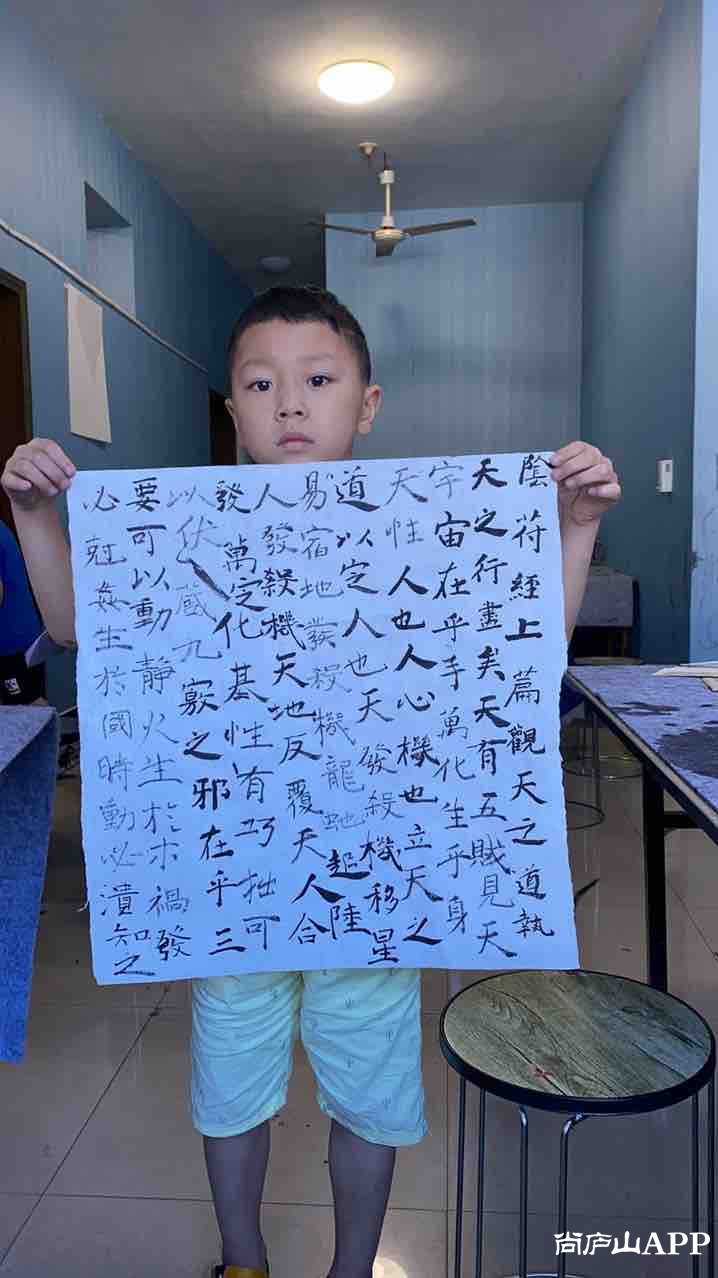 陰符經上篇觀天之道執
天之行盡矣天有五賊見天
宇宙在乎手萬化生乎身
天性人也人心機也立天之
道以定人也天發殺機移星
易宿地發殺機龍虵起陸
人發殺機天地反覆天人合
發萬定化基性有巧拙可
以伏藏九竅之邪在乎三
要可以動靜火生於木禍發
必尅姦生於國時動必潰知之
尚庐山APP